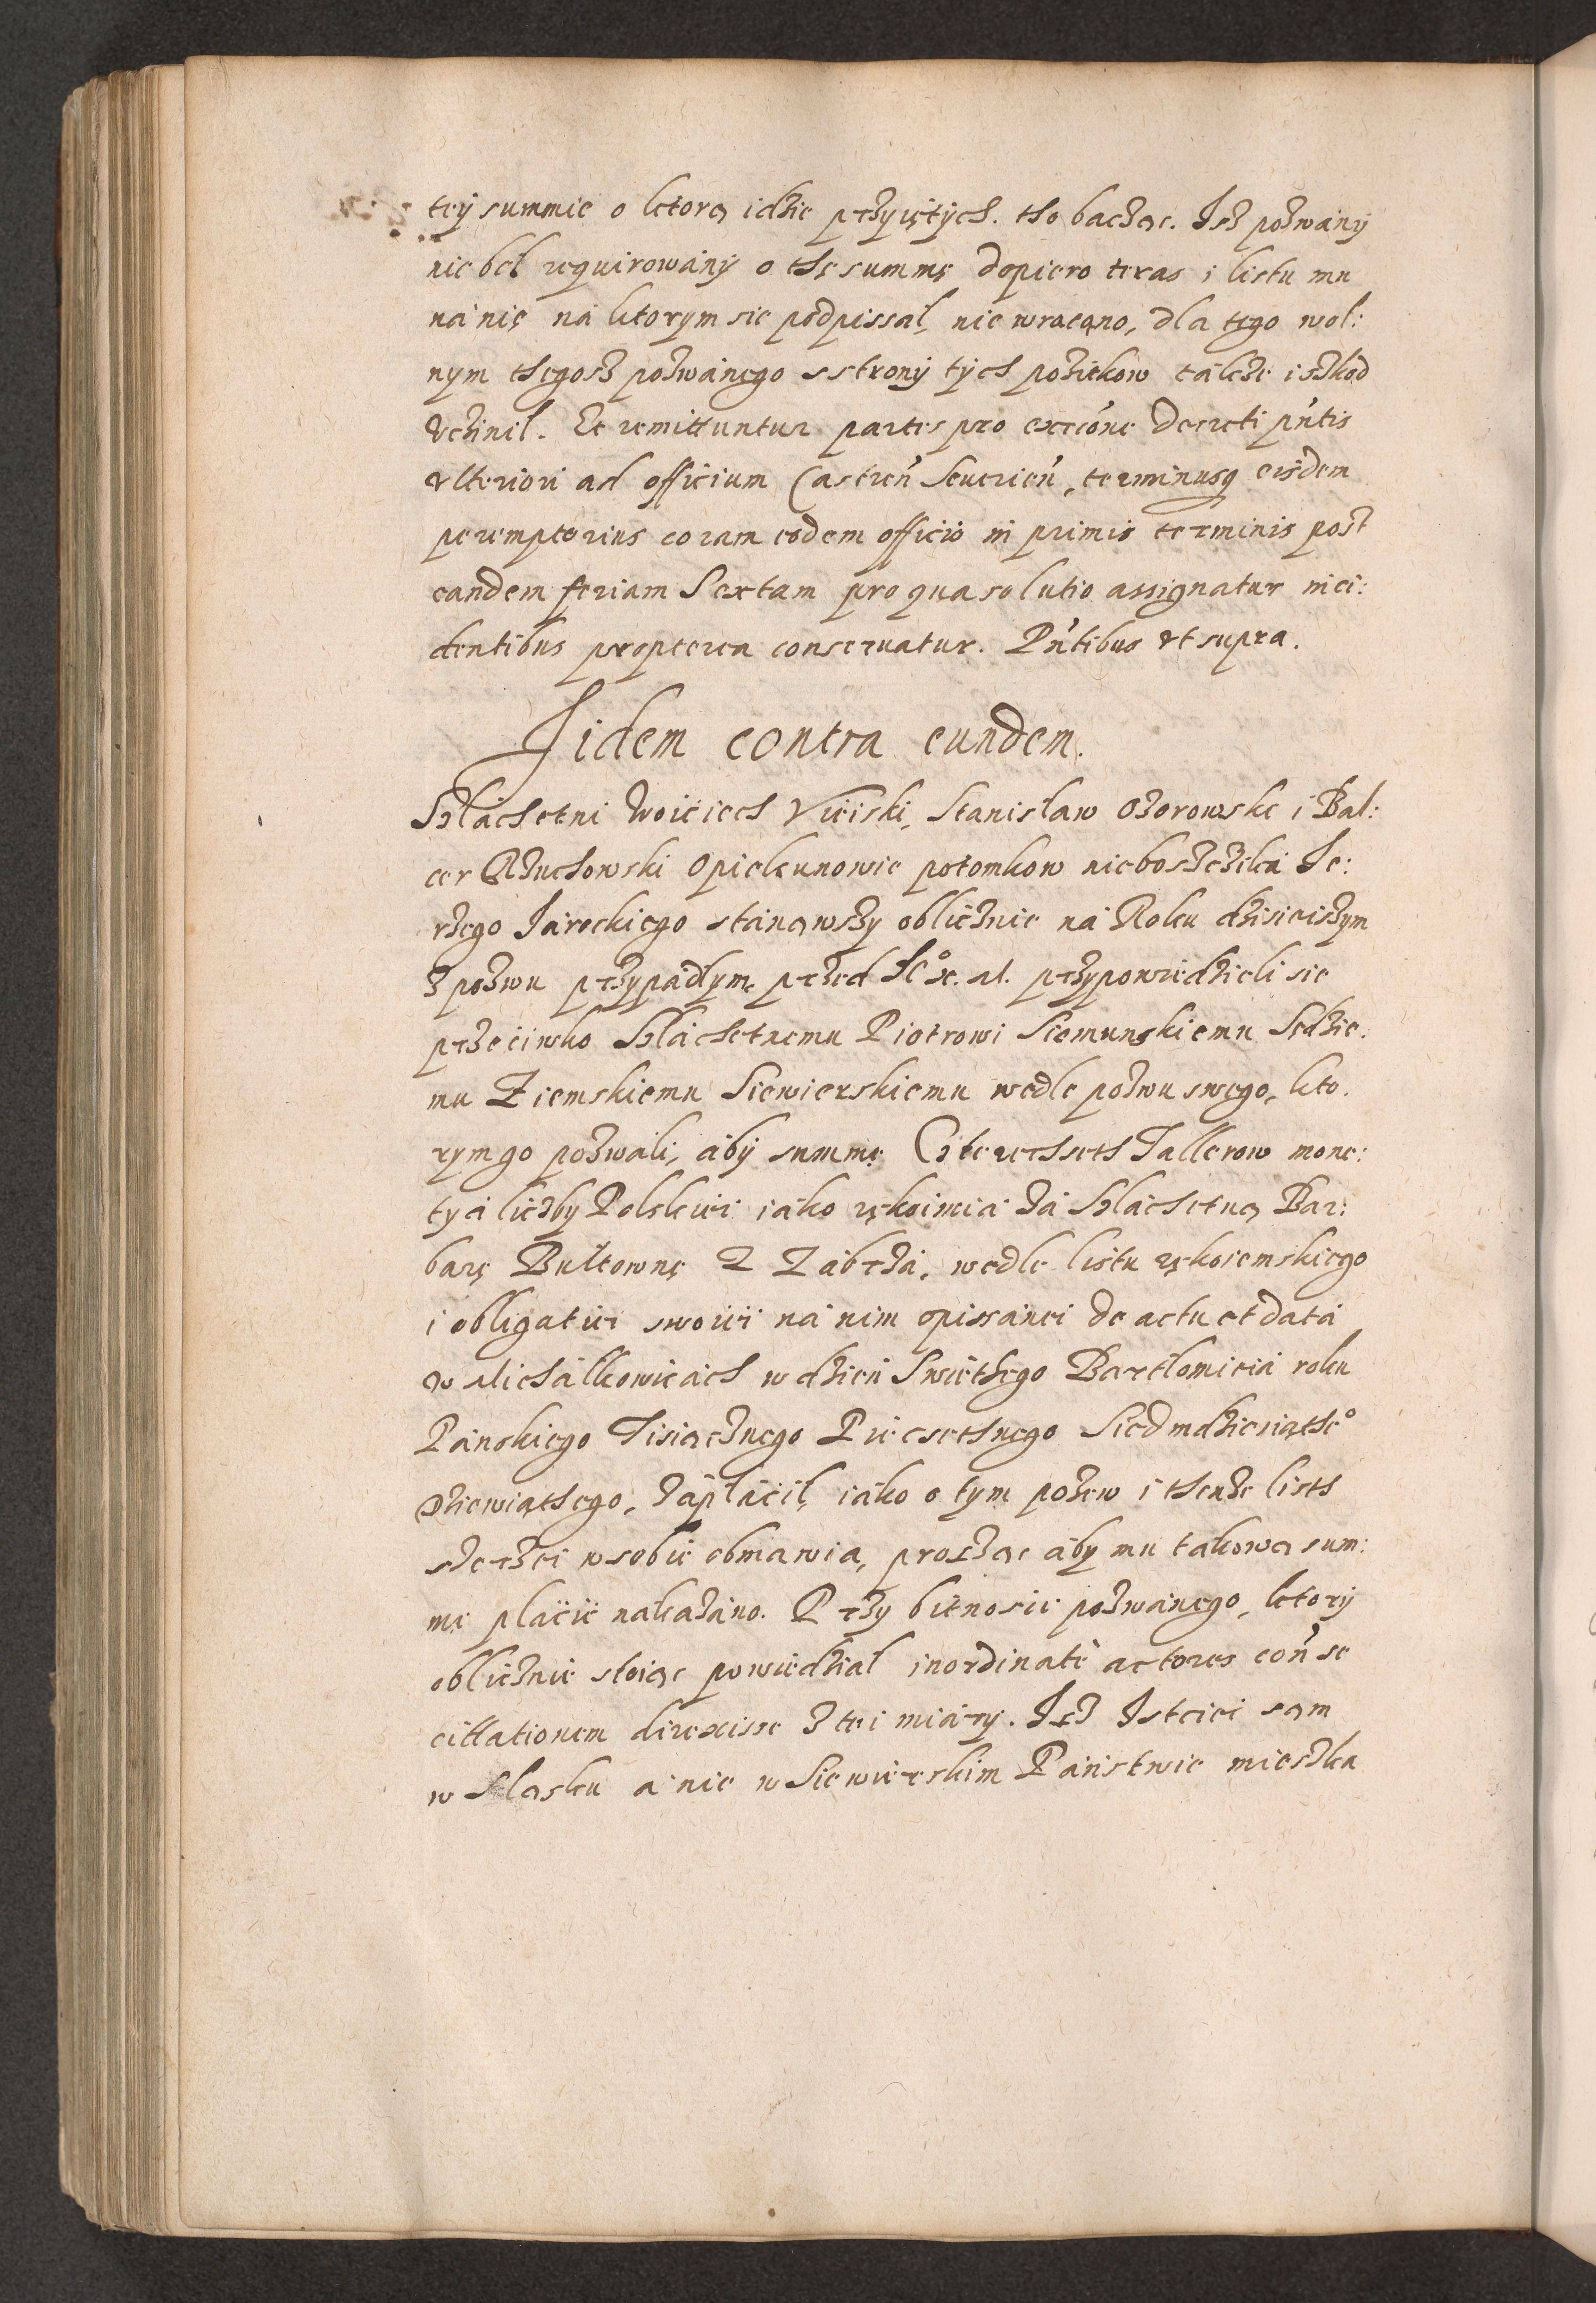 tey summie o ktorą idzie przyiętych. tho bacząc. Isz pozwany
nie bel requirowany o thę summę dopiero teras i listu mu
na nię na ktorym sie podpissał, nie wracano, dla tego wol:
nym thegosz pozwanego sstrony tych pozitkow takze i szkod
vczinil. Et remittuntur partes pro exećone decreti pńtis
vlteriori ad officium Castreń Seuerień, terminusq eisdem
peremptorius coram eodem officio in primis terminis post
eandem feriam Sextam pro qua solutio assignatur inci:
dentibus propterea conseruatur. Pńtibus vt supra.
Iidem contra eundem.
Szlachetni Woiciech Vieiski, Stanisław Ozorowske i Bal:
cer Rzuchowski Opiekunowie potomkow nieboszczika Ie:
rzego Iarockiego stanąwszy oblicznie na Roku dzisieiszym
z pozwu przypadlym, przed przypowiedzieli sie
przeciwko Szlachetnemu Piotrowi Siemunskiemu Sędzie.
mu Ziemskiemu Siewierskiemu wedle pozwu swego, kto.
rym go pozwali, aby summę Czterechseth Tallerow mone:
ty a liczby Polskiei iako rękoimia za Szlachetną Bar:
barę Bultownę Z Zabrza, wedle listu rękoiemskiego
i obligatiei swoiei na nim opissanei de actu et data
w Michalkowicach w dzien Swiethego Bartlomieia roku
Panskiego Tisiącznego Piecsethnego Siedmdziesiąthe°
dziewiąthego, zaplacil, iako o tym pozew i thenze listh
szerzei w sobie obmawia, prosząc aby mu takową sum:
mę placic nakazano. Przy bitnosci pozwanego, ktory
oblicznie stoiąc powiedzial inordinatè actores coń se
cittationem direxisse z tei miary. Isz Istciei sam
w Sląsku a nie w Siewierskim Panstwie mieszka